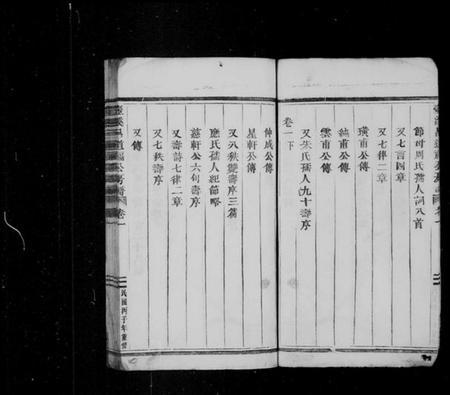 節母周氏孺人詞八首
又七言四章
又七律二章
璜甫公傳
純甫公傳
雲甫公傳
又朱氏孺人九十壽序
卷一下
仲成公傳
星軒公傳
又八秩雙壽序三篇
應氏孺人紀節略
慈軒公六旬壽序
又壽詩七律二章
又七秩壽序
又傳
卷一
民國丙子年重修